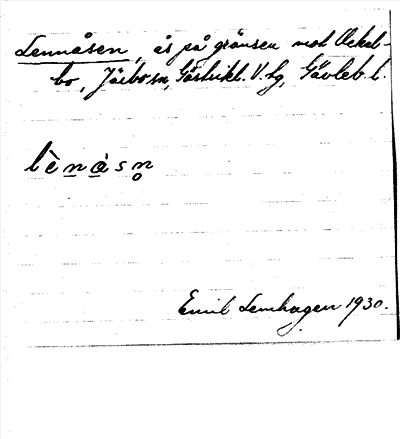 Lennåsen, ås på gränsen mot Ockel-
bo, Järbo sn, Gästrikl. V. tg, Gävleb. l.
lènàsn̥
Emil Lenhagen 1930.